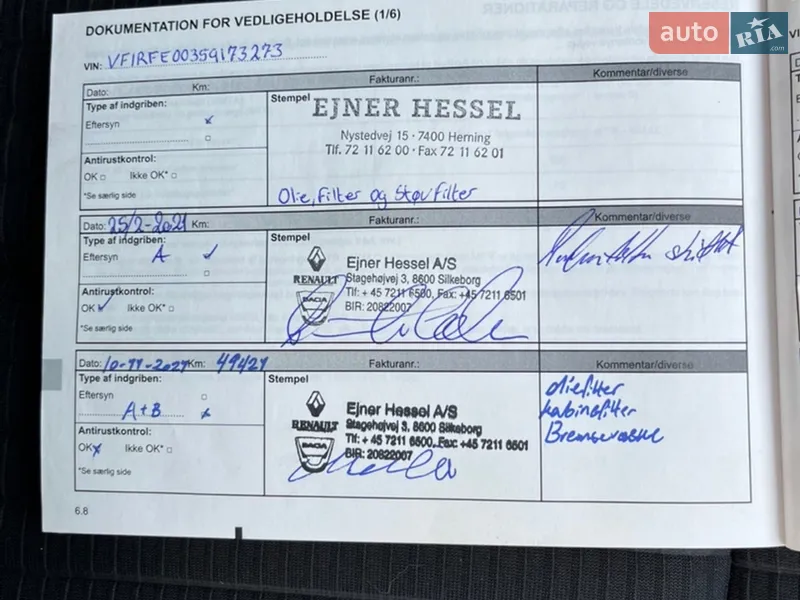 DOKUMENTATION FOR VEDLIGEHOLDELSE (1/6)
auto RIA .com
VIN: VF1RFE00359173273
Dato: Km: Fakturanr.: Kommentar/diverse
Type af indgriben:
Eftersyn
Antirustkontrol:
OK Ikke OK*
*Se særlig side
Stempel
EJNER HESSEL
Nystedvej 15 · 7400 Herning
Tlf. 72 11 62 00 · Fax 72 11 62 01
Olie, Filter og Støvfilter
Dato: 25/2-2021 Km: Fakturanr.: Kommentar/diverse
Type af indgriben:
Eftersyn A
Antirustkontrol:
OK Ikke OK*
*Se særlig side
Stempel
RENAULT
DACIA
Ejner Hessel A/S
Stagehøjvej 3, 8600 Silkeborg
Tlf: + 45 7211 6500, Fax: +45 7211 6501
BIR: 20822007
Dato: Km: 49421 Fakturanr.: Kommentar/diverse
Type af indgriben:
Eftersyn
A+B
Antirustkontrol:
OK Ikke OK*
*Se særlig side
Stempel
RENAULT
DACIA
Ejner Hessel A/S
Stagehøjvej 3, 8600 Silkeborg
Tlf: + 45 7211 6500, Fax: +45 7211 6501
BIR: 20822007
oliefilter
kabinefilter
Bremsevæske
6.8